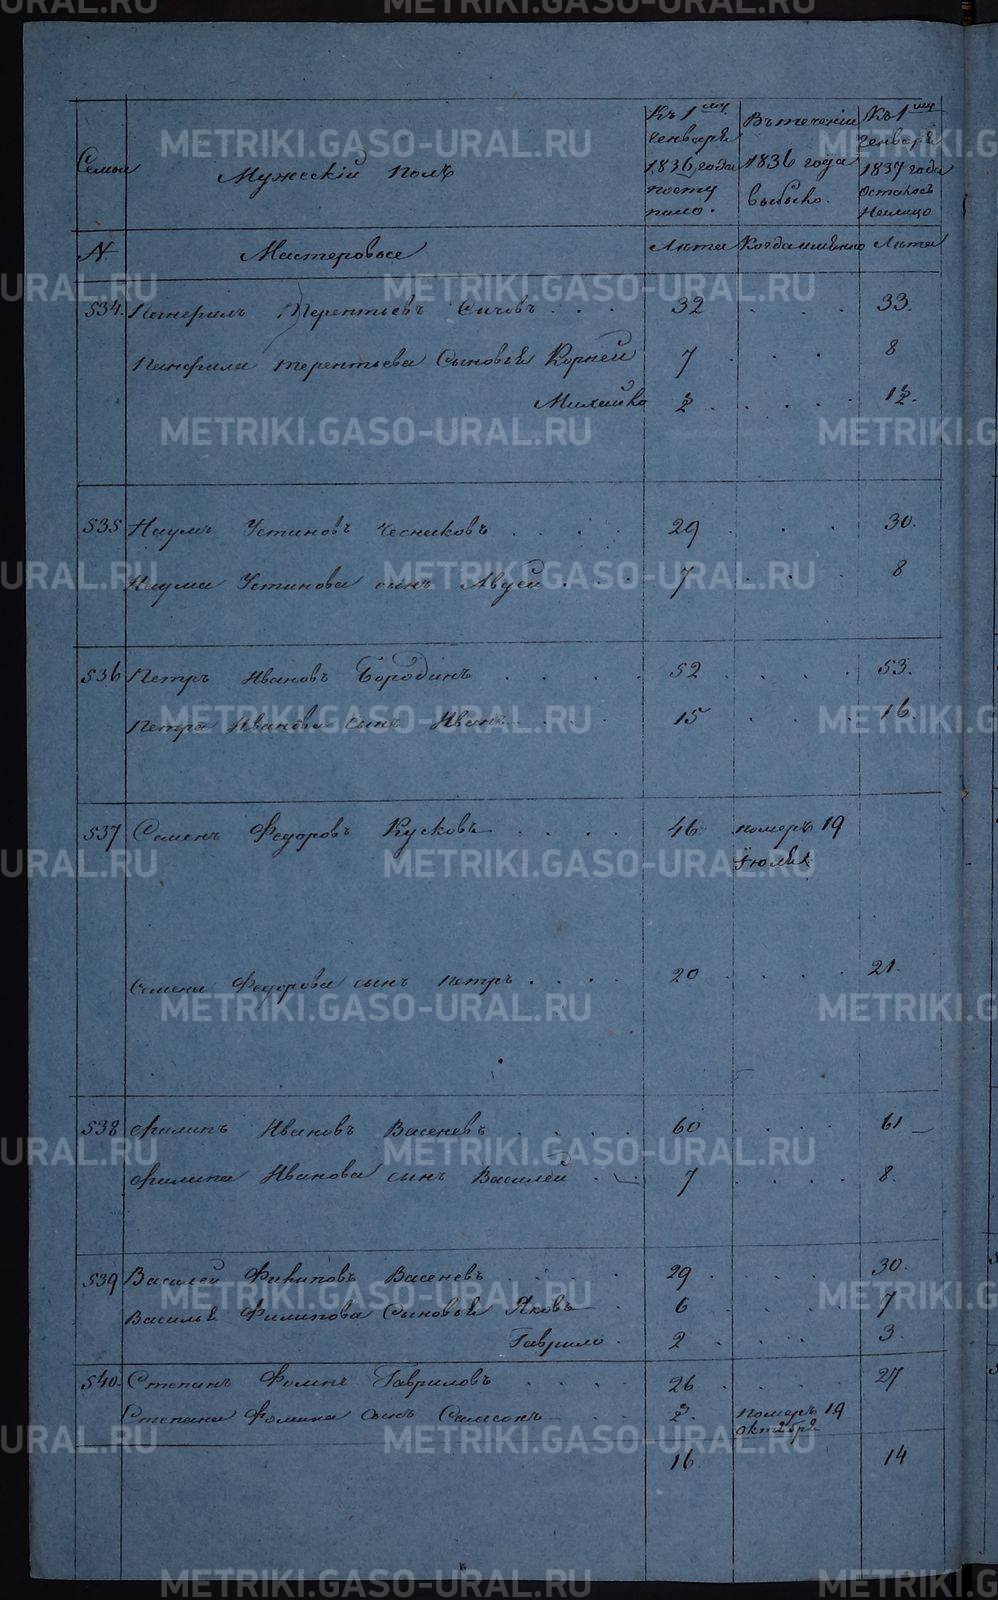 METRIKI.GASO-URAL.RU
Семьи
Мужескій полъ
Къ 1му
Генваря
1836 года
посту
пило.
Въ теченіи
1836 года
выбыло.
Къ 1му
Генваря
1837 года
осталось
Налицо
N Мастеровые Лѣта Когда имянно Лѣта
534. Панфилъ Терентьевъ Сычовъ . . . 32 . . . 33.
Панфила Терентьева Сыновья Корней 7 . . . 8
Михайло 1/2 . . . . 1 1/2.
535 Наумъ Устиновъ Чесноковъ . . . . 29 . . . 30.
Наума Устинова сынъ Авдей . . . 7 . . . 8
536 Петръ Ивановъ Бородинъ . . . . 52 . . . . 53.
Петра Иванова сынъ Иванъ . . . 15 . . . 16.
537 Семенъ Федоровъ Кусковъ . . . . 46 померъ 19
Іюля
Семена Федорова сынъ Петръ . . . . 20 . . . . 21.
538 Филипъ Ивановъ Васеневъ . . . . 60 . . . . 61
Филипа Иванова сынъ Василей . . 7 . . . . 8.
539 Василей Филиповъ Васеневъ . . . . 29 . . . . 30.
Василья Филипова Сыновья Яковъ . 6 . . . . 7
Гаврило . 2 . . . . 3.
540. Степанъ Фоминъ Гавриловъ . . . . 26 . . . 27
Степана Фомина сынъ Самсонъ . . 1/2. померъ 19
октября
16 14